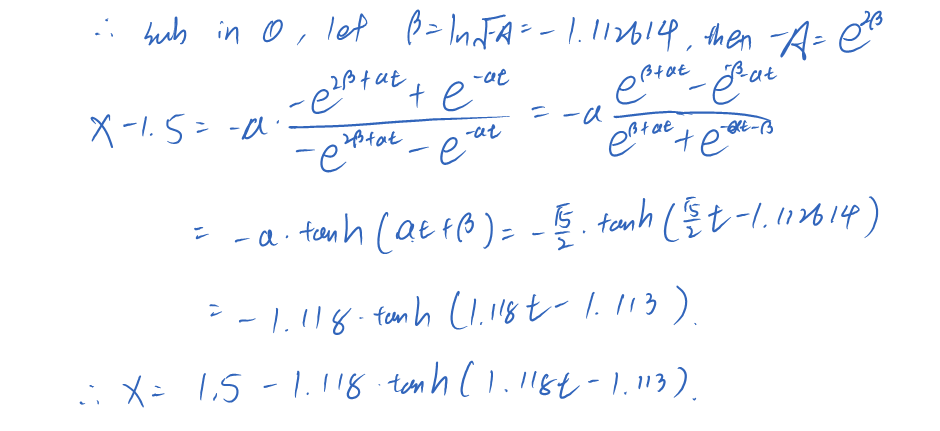 ∴ sub in 0, let β = ln√-A = -1.112614, then -A = e^{2β}
x - 1.5 = -a · (-e^{2β+at} + e^{-at}) / (-e^{2β+at} - e^{-at}) = -a (e^{β+at} - e^{-β-at}) / (e^{β+at} + e^{-at-β})
= -a · tanh(at + β) = -√5/2 · tanh(√5/2 t - 1.112614)
= -1.118 · tanh(1.118t - 1.113).
∴ x = 1.5 - 1.118 · tanh(1.118t - 1.113).